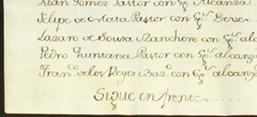 Juan Gomez Pastor con Esp.ª Alcanza
Felipe de Maia Pastor con Esp.ª Deve
Lazaro de Sousa Ranchero con Esp.ª alc
Pedro Quintana Pastor con Esp.ª alcanz
Fran.co de los Reyes con Esp.ª alcanz
Sigue en frente